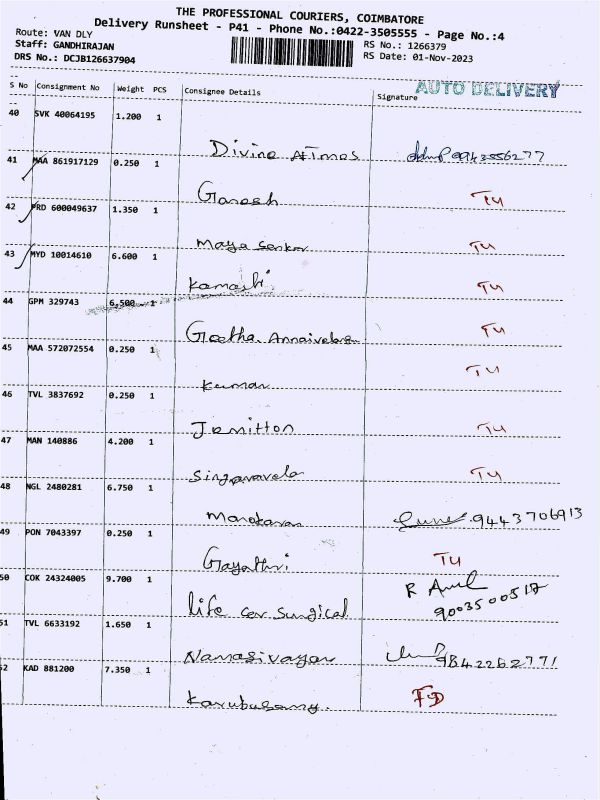 THE PROFESSIONAL COURIERS, COIMBATORE
Delivery Runsheet - P41 - Phone No.:0422-3505555 - Page No.:4
Route: VAN DLY
Staff: GANDHIRAJAN
DRS No.: DCJB126637904
RS No.: 1266379
RS Date: 01-Nov-2023
AUTO DELIVERY
S No Consignment No Weight PCS Consignee Details Signature
40 SVK 40064195 1.200 1
Divine
41 MAA 861917129 0.250 1
Ganesh TU
42 PRD 600049637 1.350 1
Maya Senkar TU
43 MYD 10014610 6.600 1
Kamashi TU
44 GPM 329743 6.500 1
Geetha TU
45 MAA 572072554 0.250 1 TU
Kumar
46 TVL 3837692 0.250 1
Jemitton TU
47 MAN 140886 4.200 1
Singaravelu TU
48 NGL 2480281 6.750 1
Manokaran 9443706913
49 PON 7043397 0.250 1
Gayathri TU
50 COK 24324005 9.700 1 R
life car Surgical 9003500517
51 TVL 6633192 1.650 1
Namasivayam 9842262771
52 KAD 881200 7.350 1
FD